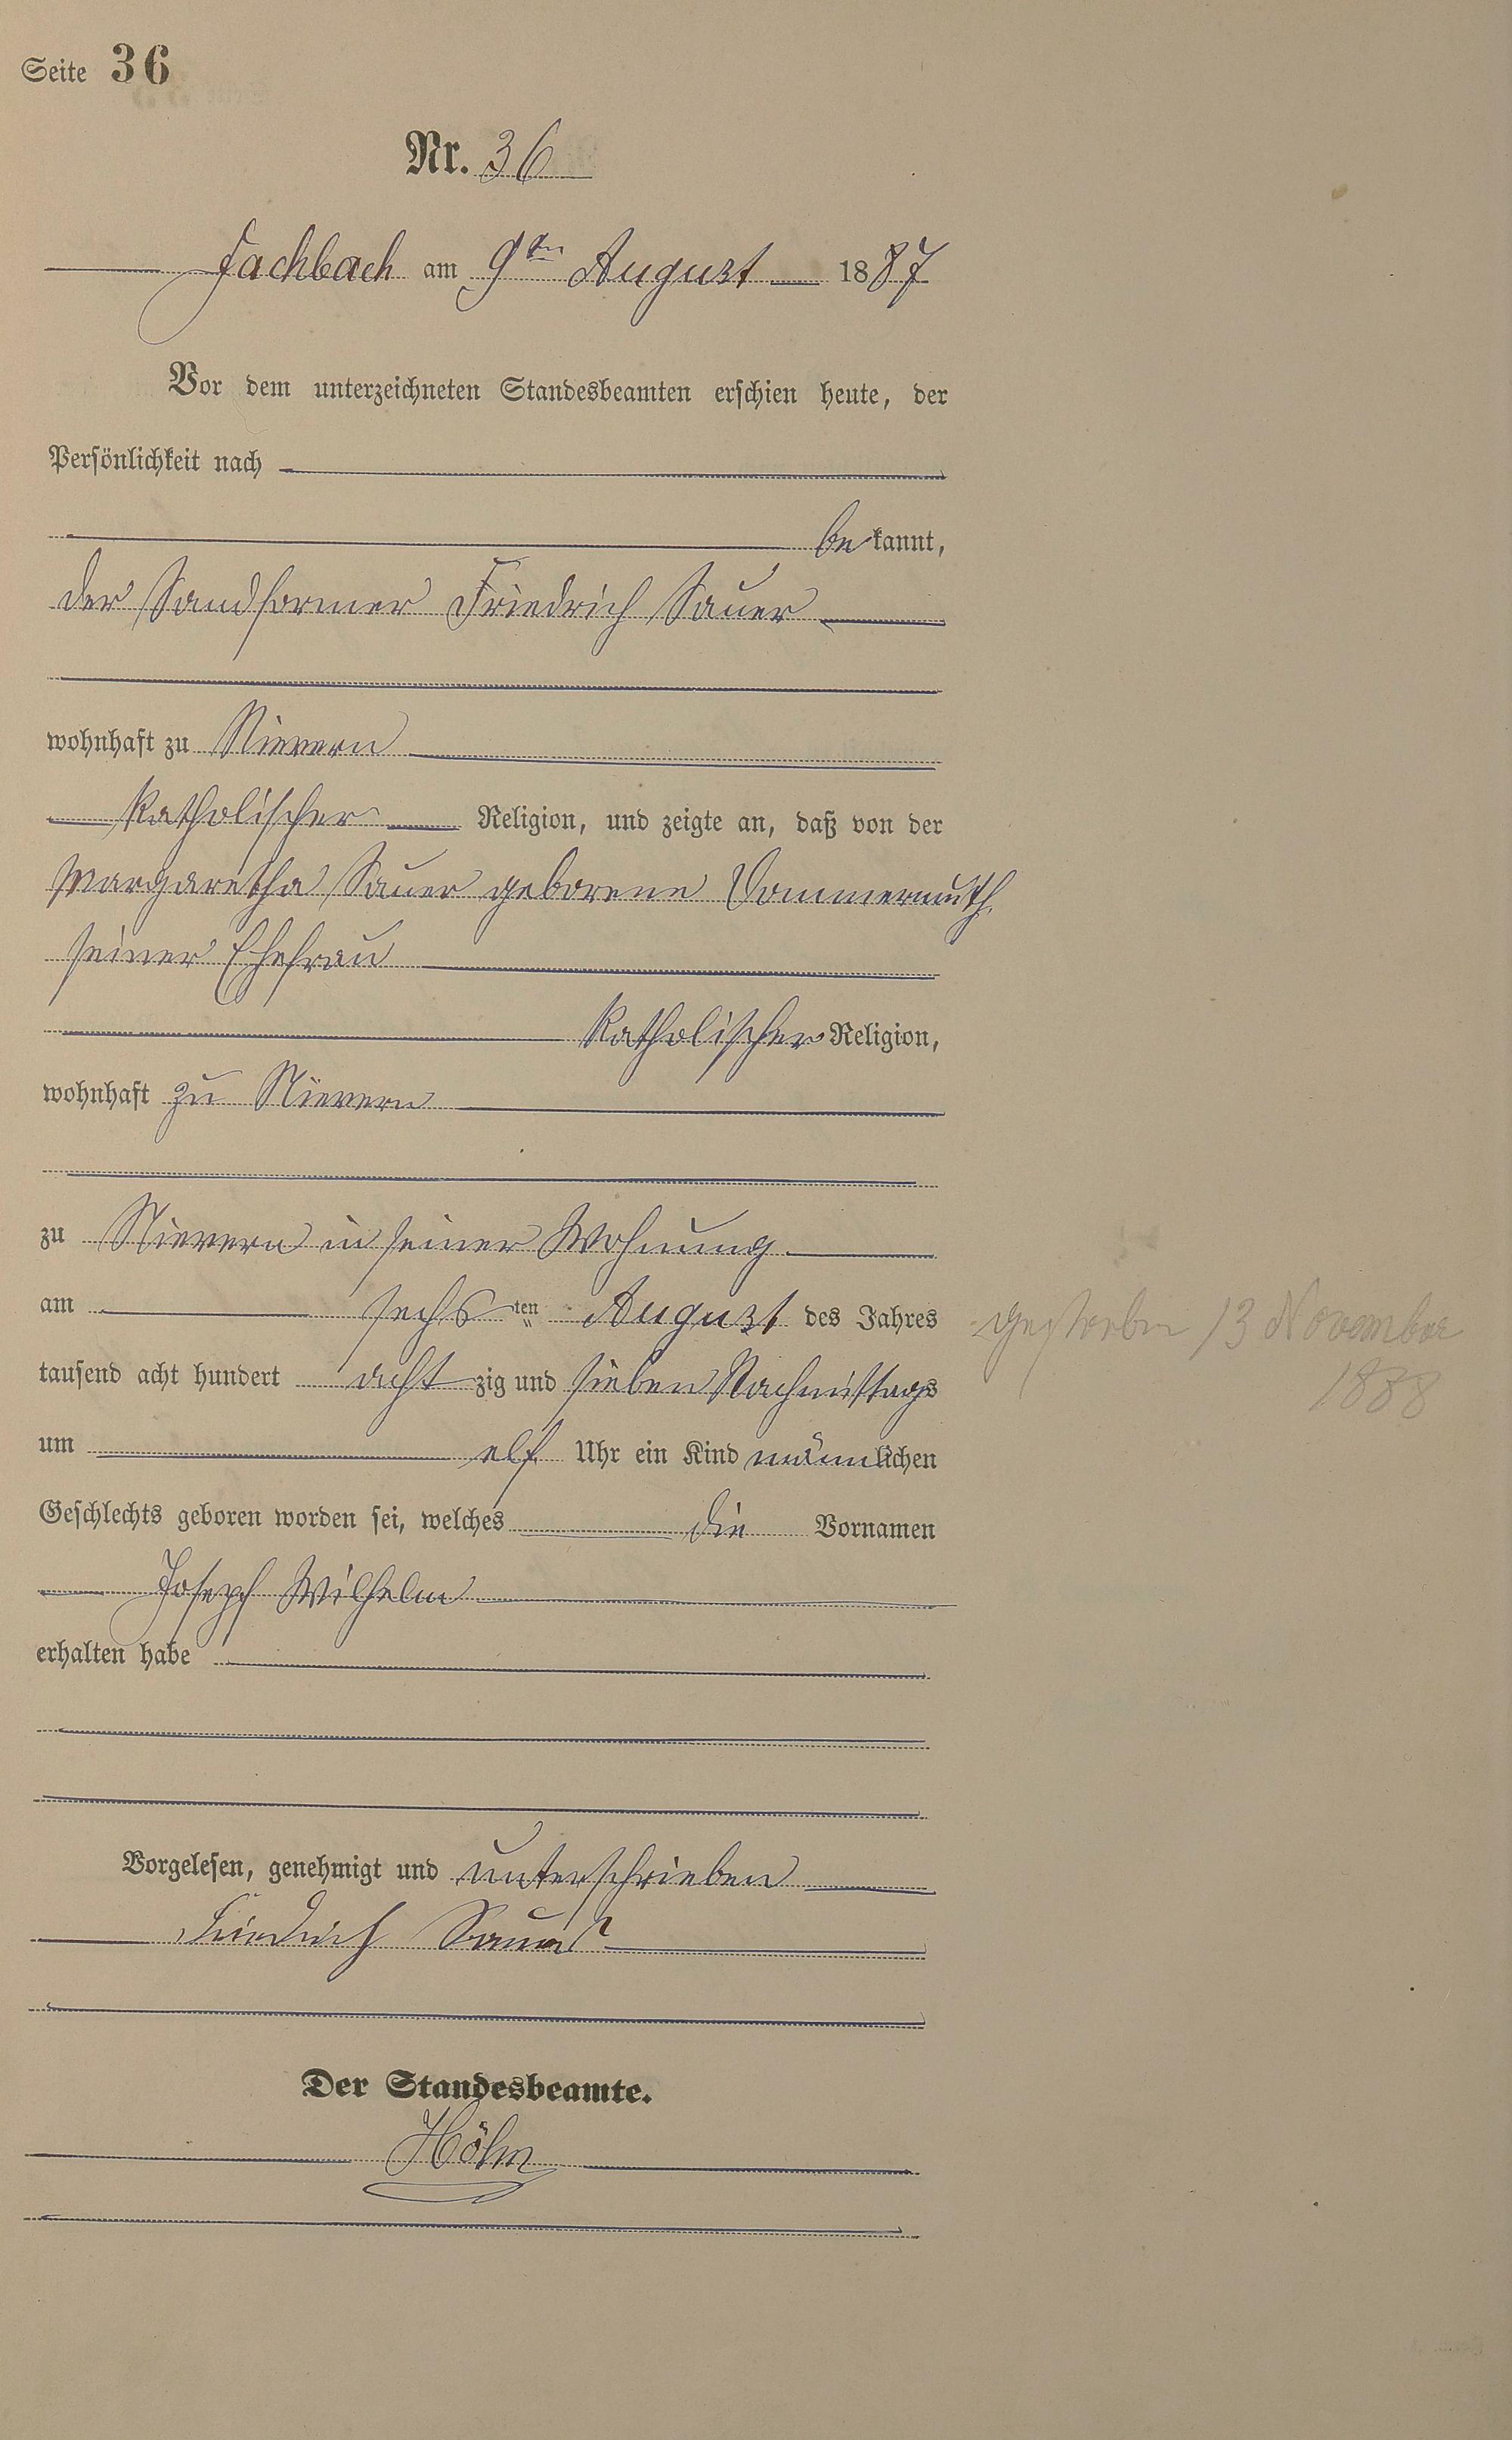 Seite 36
Nr. 36
Fachbach am 9ten August 1887
Vor dem unterzeichneten Standesbeamten erschien heute, der
Persönlichkeit nach
bekannt,
der Sandformer Friedrich Sauer
wohnhaft zu Nievern
katholischer Religion, und zeigte an, daß von der
Margaretha Sauer geborene Vommermuth
seiner Ehefrau
katholischer Religion,
wohnhaft zu Nievern
zu Nievern in seiner Wohnung
am sechsten August des Jahres
tausend acht hundert achtzig und sieben Nachmittags
um elf Uhr ein Kind männlichen
Geschlechts geboren worden sei, welches die Vornamen
Joseph Wilhelm
erhalten habe
gestorben 13 November
1888
Vorgelesen, genehmigt und unterschrieben
Friedrich Sauer
Der Standesbeamte.
Höhn